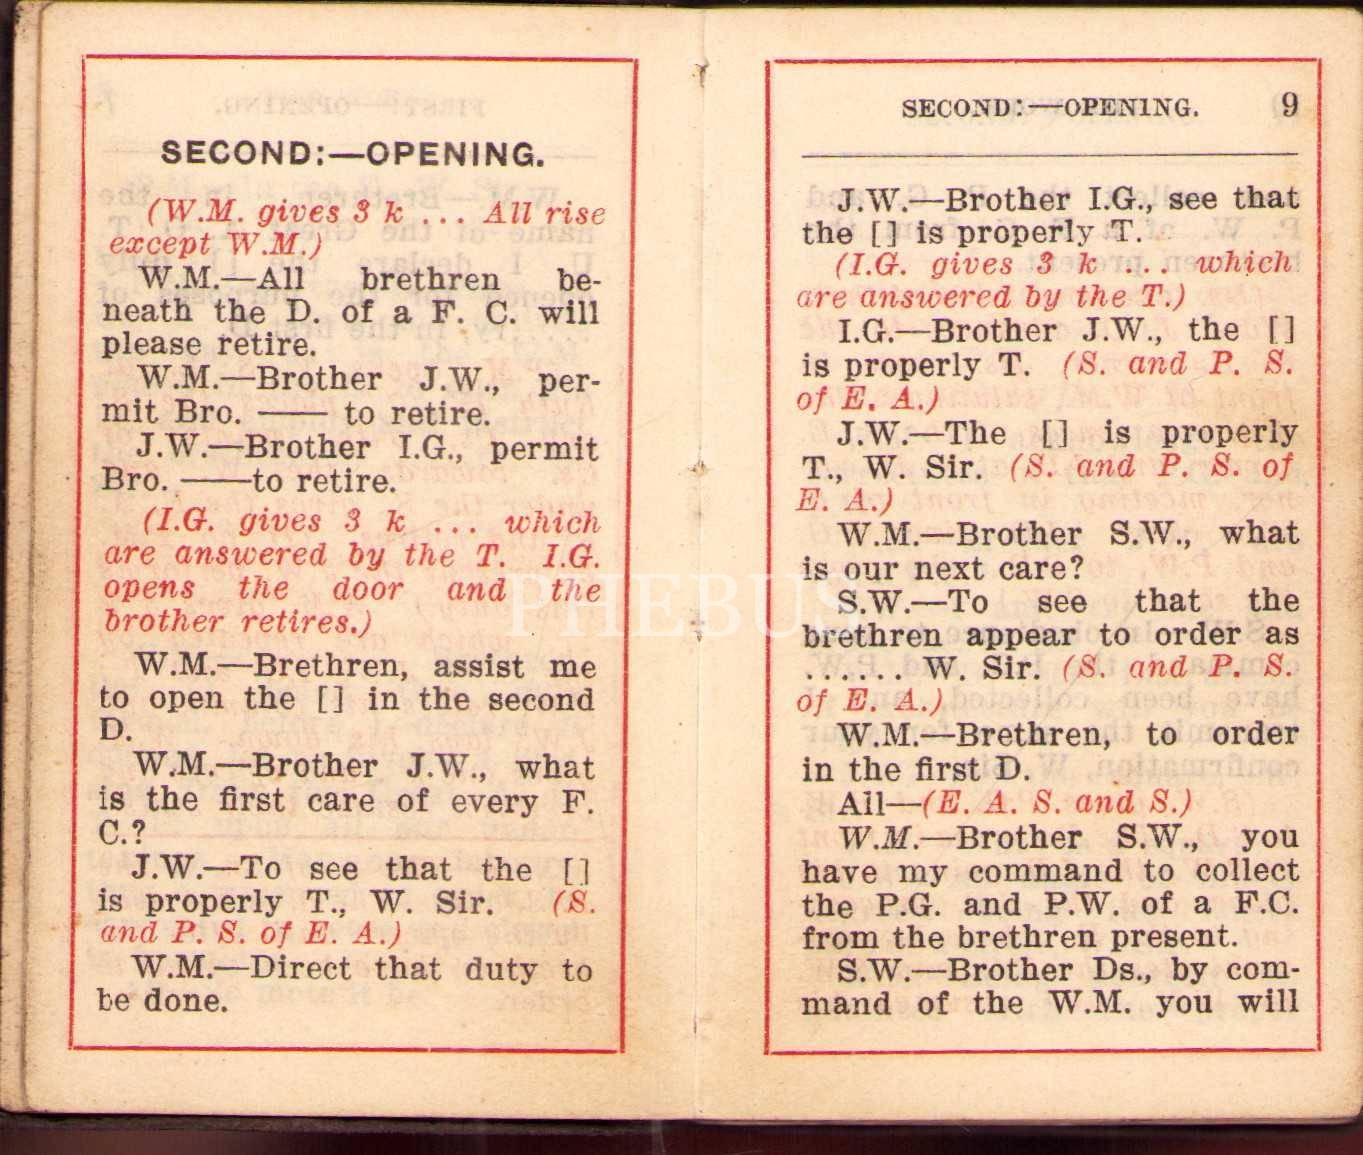 SECOND:—OPENING.
(W.M. gives 3 k ... All rise
except W.M.)
W.M.—All brethren be-
neath the D. of a F. C. will
please retire.
W.M.—Brother J.W., per-
mit Bro. —— to retire.
J.W.—Brother I.G., permit
Bro. ——to retire.
(I.G. gives 3 k ... which
are answered by the T. I.G.
opens the door and the
brother retires.)
W.M.—Brethren, assist me
to open the [] in the second
D.
W.M.—Brother J.W., what
is the first care of every F.
C.?
J.W.—To see that the []
is properly T., W. Sir. (S.
and P. S. of E. A.)
W.M.—Direct that duty to
be done.
SECOND:—OPENING. 9
J.W.—Brother I.G., see that
the [] is properly T.
(I.G. gives 3 k ... which
are answered by the T.)
I.G.—Brother J.W., the []
is properly T. (S. and P. S.
of E. A.)
J.W.—The [] is properly
T., W. Sir. (S. and P. S. of
E. A.)
W.M.—Brother S.W., what
is our next care?
S.W.—To see that the
brethren appear to order as
...... W. Sir. (S. and P. S.
of E. A.)
W.M.—Brethren, to order
in the first D.
All—(E. A. S. and S.)
W.M.—Brother S.W., you
have my command to collect
the P.G. and P.W. of a F.C.
from the brethren present.
S.W.—Brother Ds., by com-
mand of the W.M. you will
PHEBUS